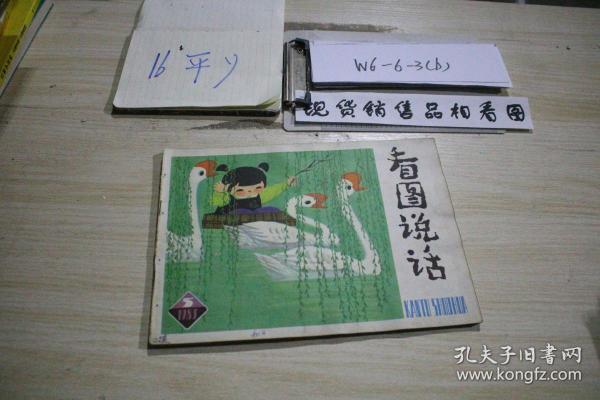 16 平
W6-6-3(b)
现货销售品相看图
看图说话
KANTU SHUOHUA
5
孔夫子旧书网
www.kongfz.com